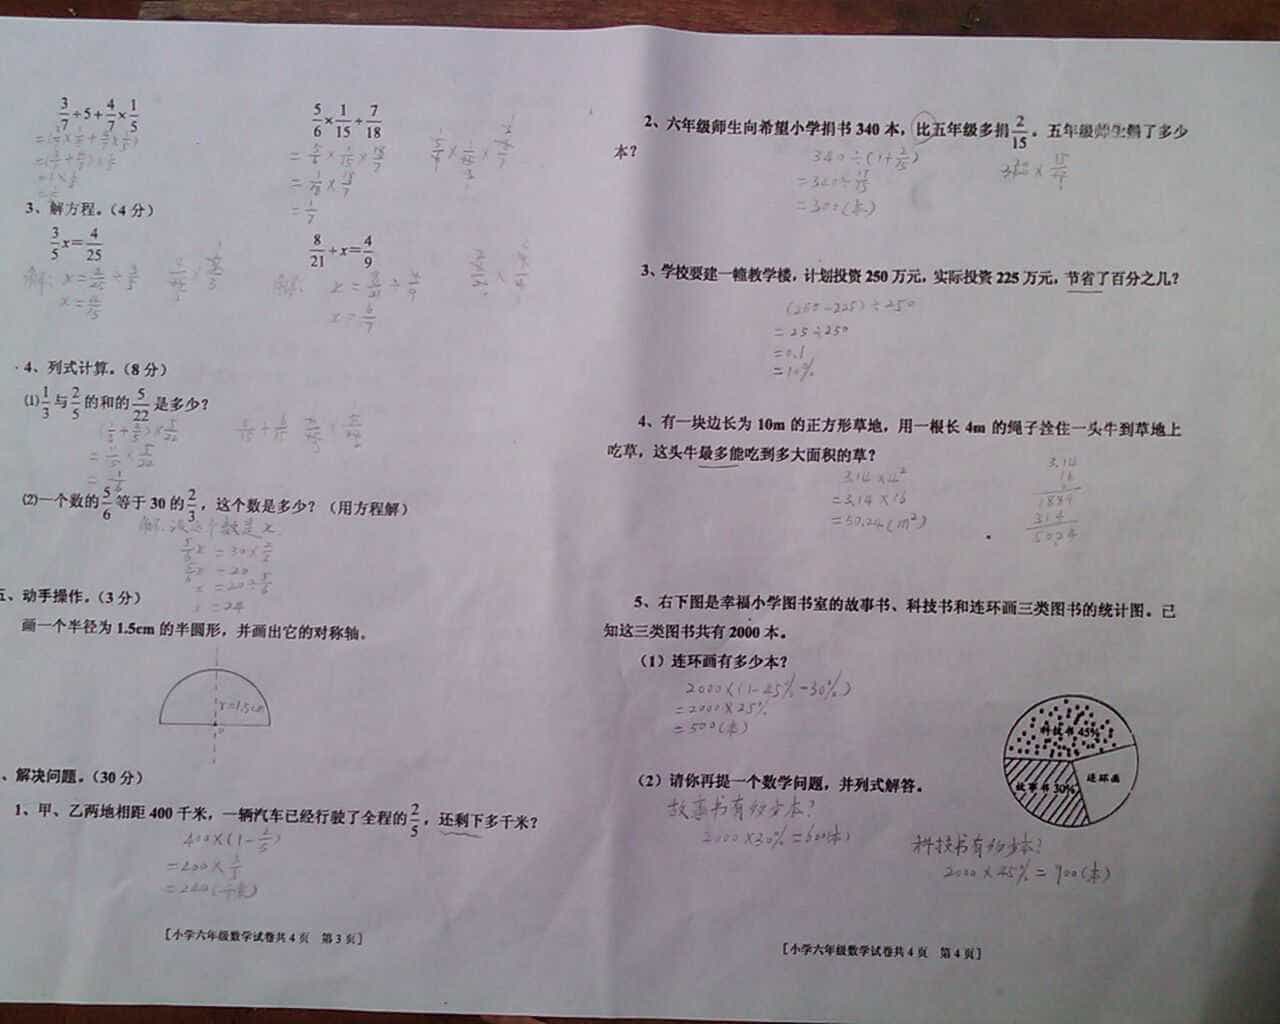 3/7÷5+4/7×1/5
=(3/7×1/5+4/7×1/5)
=(3/7+4/7)×1/5
=1×1/5
=1/5
5/6×1/15÷7/18
=5/6×1/15×18/7
=1/18×18/7
=1/7
3、解方程。（4分）
3/5x=4/25
解：x=4/25÷3/5
x=4/15
8/21÷x=4/9
解：x=8/21÷4/9
x=6/7
4、列式计算。（8分）
⑴1/3与2/5的和的5/22是多少？
(1/3+2/5)×5/22
=11/15×5/22
=1/6
5/15+6/15
⑵一个数的5/6等于30的2/3，这个数是多少？（用方程解）
解：设这个数是x.
5/6x=30×2/3
5/6x=20
x=20÷5/6
x=24
五、动手操作。（3分）
画一个半径为1.5cm的半圆形，并画出它的对称轴。
r=1.5cm
o
、解决问题。（30分）
1、甲、乙两地相距400千米，一辆汽车已经行驶了全程的2/5，还剩下多千米？
400×(1-2/5)
=400×3/5
=240(千米)
[小学六年级数学试卷共4页 第3页]
2、六年级师生向希望小学捐书340本，比五年级多捐2/15。五年级师生捐了多少
本？
340÷(1+2/15)
=340÷17/15
=300(本)
340×15/17
3、学校要建一幢教学楼，计划投资250万元，实际投资225万元，节省了百分之几？
(250-225)÷250
=25÷250
=0.1
=10%
4、有一块边长为10m的正方形草地，用一根长4m的绳子拴住一头牛到草地上
吃草，这头牛最多能吃到多大面积的草？
3.14×4²
=3.14×16
=50.24(m²)
3.14
16
1884
314
50.24
5、右下图是幸福小学图书室的故事书、科技书和连环画三类图书的统计图。已
知这三类图书共有2000本。
（1）连环画有多少本？
2000×(1-45%-30%)
=2000×25%
=500(本)
科技书45%
连环画
故事书30%
（2）请你再提一个数学问题，并列式解答。
故事书有多少本？
2000×30%=600(本)
科技书有多少本？
2000×45%=900(本)
[小学六年级数学试卷共4页 第4页]